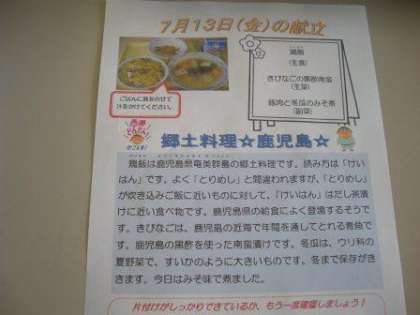 7月13日(金)の献立
鶏飯
(主食)
きびなごの黒酢南蛮
(主菜)
豚肉と冬瓜のみそ煮
(副菜)
ごはんに具をのせて
汁をかけてください。
郷土料理☆鹿児島☆
鶏飯は鹿児島県奄美群島の郷土料理です。読み方は「けい
はん」です。よく「とりめし」と間違われますが、「とりめし」
が炊き込みご飯に近いものに対して、「けいはん」はだし茶漬
けに近い食べ物です。鹿児島県の給食によく登場するそうで
す。きびなごは、鹿児島の近海で年間を通してとれる青魚で
す。鹿児島の黒酢を使った南蛮漬けです。冬瓜は、ウリ科の
夏野菜で、すいかのように大きいものです。冬まで保存がき
きます。今日はみそ味で煮ました。
片付けがしっかりできているか、もう一度確認しましょう！